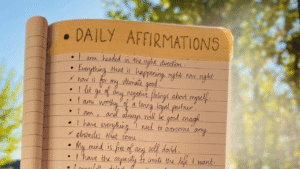 • DAILY AFFIRMATIONS
• I am headed in the right direction.
• Everything that is happening right now right
now is for my ultimate good.
• I let go of any negative feelings about myself.
• I am worthy of a loving loyal partner.
• I am, and always will be good enough.
• I have everything I need to overcome any
obstacles that come
• My mind is free of any self doubt.
• I have the capacity to create the life I want